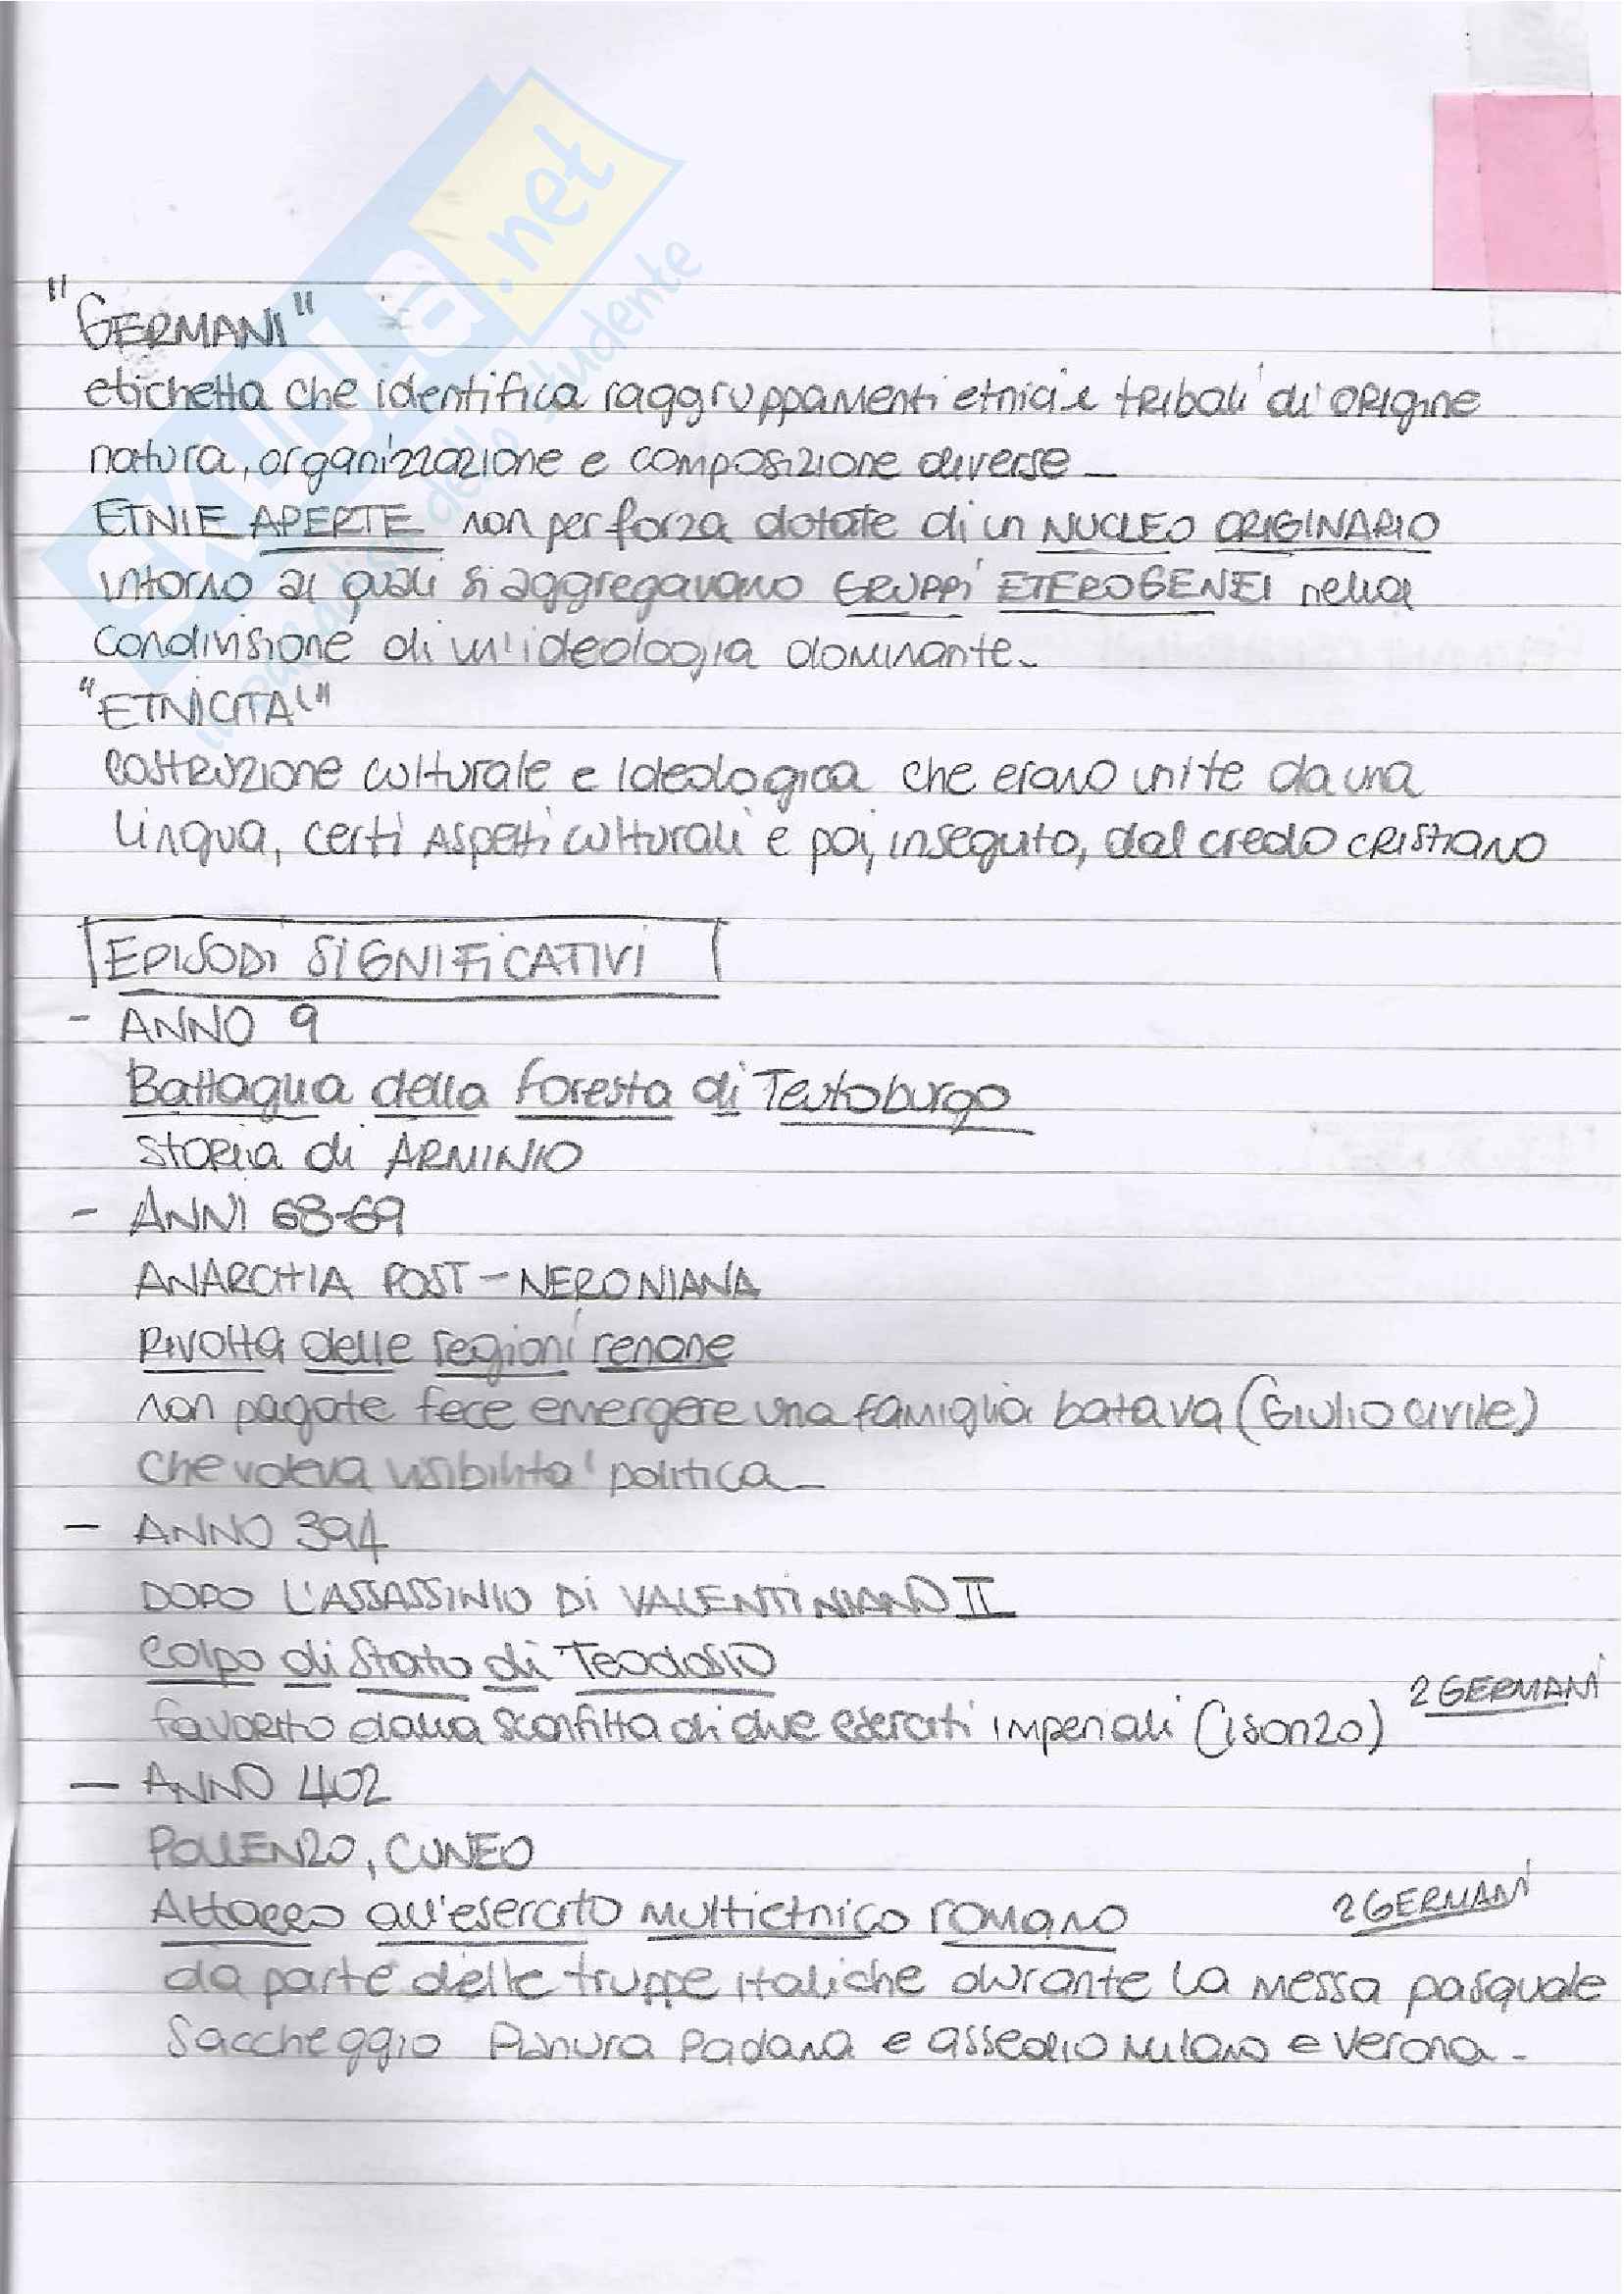 SKUOLA.net
il paradiso dello studente
"GERMANI"
etichetta che identifica raggruppamenti etnici e tribali di ORIgine
natura, organizzazione e composizione diverse_
ETNIE APERTE non per forza dotate di un NUCLEO ORIGINARIO
intorno ai quali si aggregavano GRUPPi ETEROGENEI nella
condivisione di un'ideologia dominante_
"ETNICITA'"
costruzione culturale e Ideologica che erano unite da una
lingua, certi Aspetti culturali e poi, inseguito, dal credo CRIStiANO
EPISODI SIGNIFICATIVI
- ANNO 9
Battaglia della foresta di Teutoburgo
storia di ARMINIO
- ANNI 68-69
ANARCHIA POST-NERONIANA
Rivolta delle regioni renane
non pagate fece emergere una famiglia batava (Giulio Civile)
che voleva visibilita' politica_
- ANNO 394
DOPO L'ASSASSINIO DI VALENTINIANO II
Colpo di Stato di TEODOSIO
favorito dalla sconfitta di due eserciti imperiali (Isonzo) 2 GERMANI
- ANNO 402
POLLENZO, CUNEO
Attacco all'esercito multietnico romano 2 GERMANI
da parte delle truppe italiche durante la messa pasquale
Saccheggio Pianura Padana e assedio Milano e Verona_